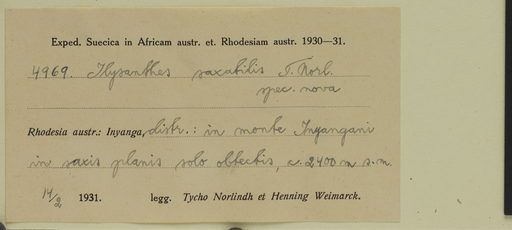 Exped. Suecica in Africam austr. et. Rhodesiam austr. 1930—31.
4969. Ilysanthes saxatilis T. Norl.
spec. nova
Rhodesia austr.: Inyanga, distr.: in monte Inyangani
in saxis planis solo obtectis, c. 2400 m s.m.
14/2 1931. legg. Tycho Norlindh et Henning Weimarck.